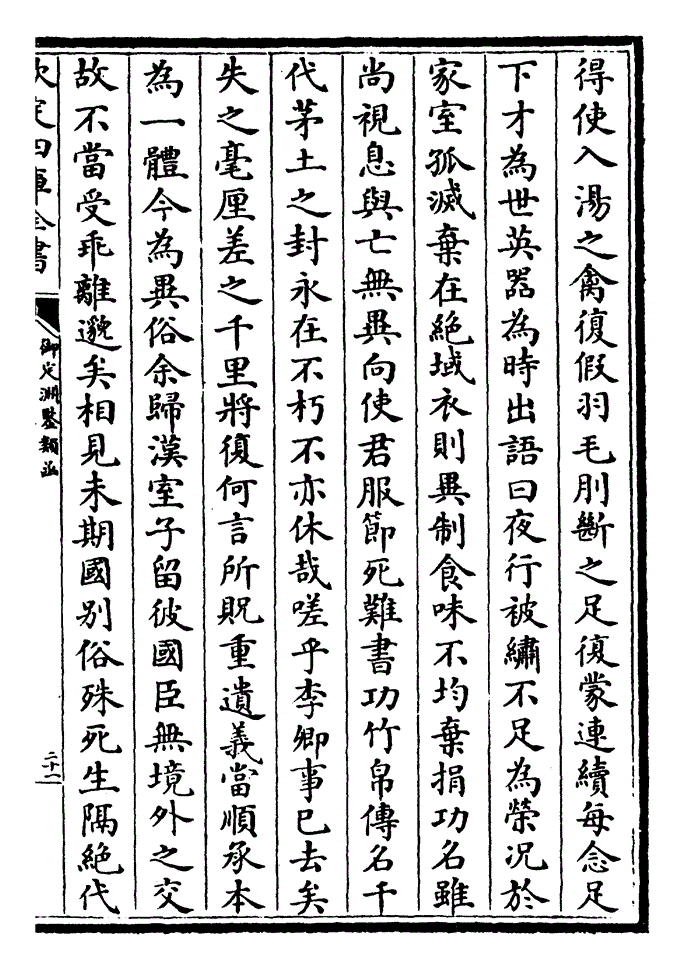 得使入湯之禽復假羽毛刖斷之足復蒙連續每念足
下才為世英器為時出語曰夜行被繡不足為榮况於
家室孤滅棄在絶域衣則異制食味不均棄捐功名雖
尚視息與亡無異向使君服節死難書功竹帛傳名千
代茅土之封永在不朽不亦休哉嗟乎李卿事已去矣
失之毫厘差之千里將復何言所貺重遺義當順承本
為一體今為異俗余歸漢室子留彼國臣無境外之交
故不當受乖離邈矣相見未期國别俗殊死生隔絶代
欽定四庫全書
御定淵鑒類函
二十一